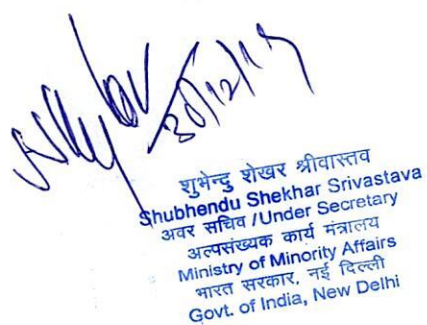 30/12/19
शुभेन्दु शेखर श्रीवास्तव
Shubhendu Shekhar Srivastava
अवर सचिव /Under Secretary
अल्पसंख्यक कार्य मंत्रालय
Ministry of Minority Affairs
भारत सरकार, नई दिल्ली
Govt. of India, New Delhi